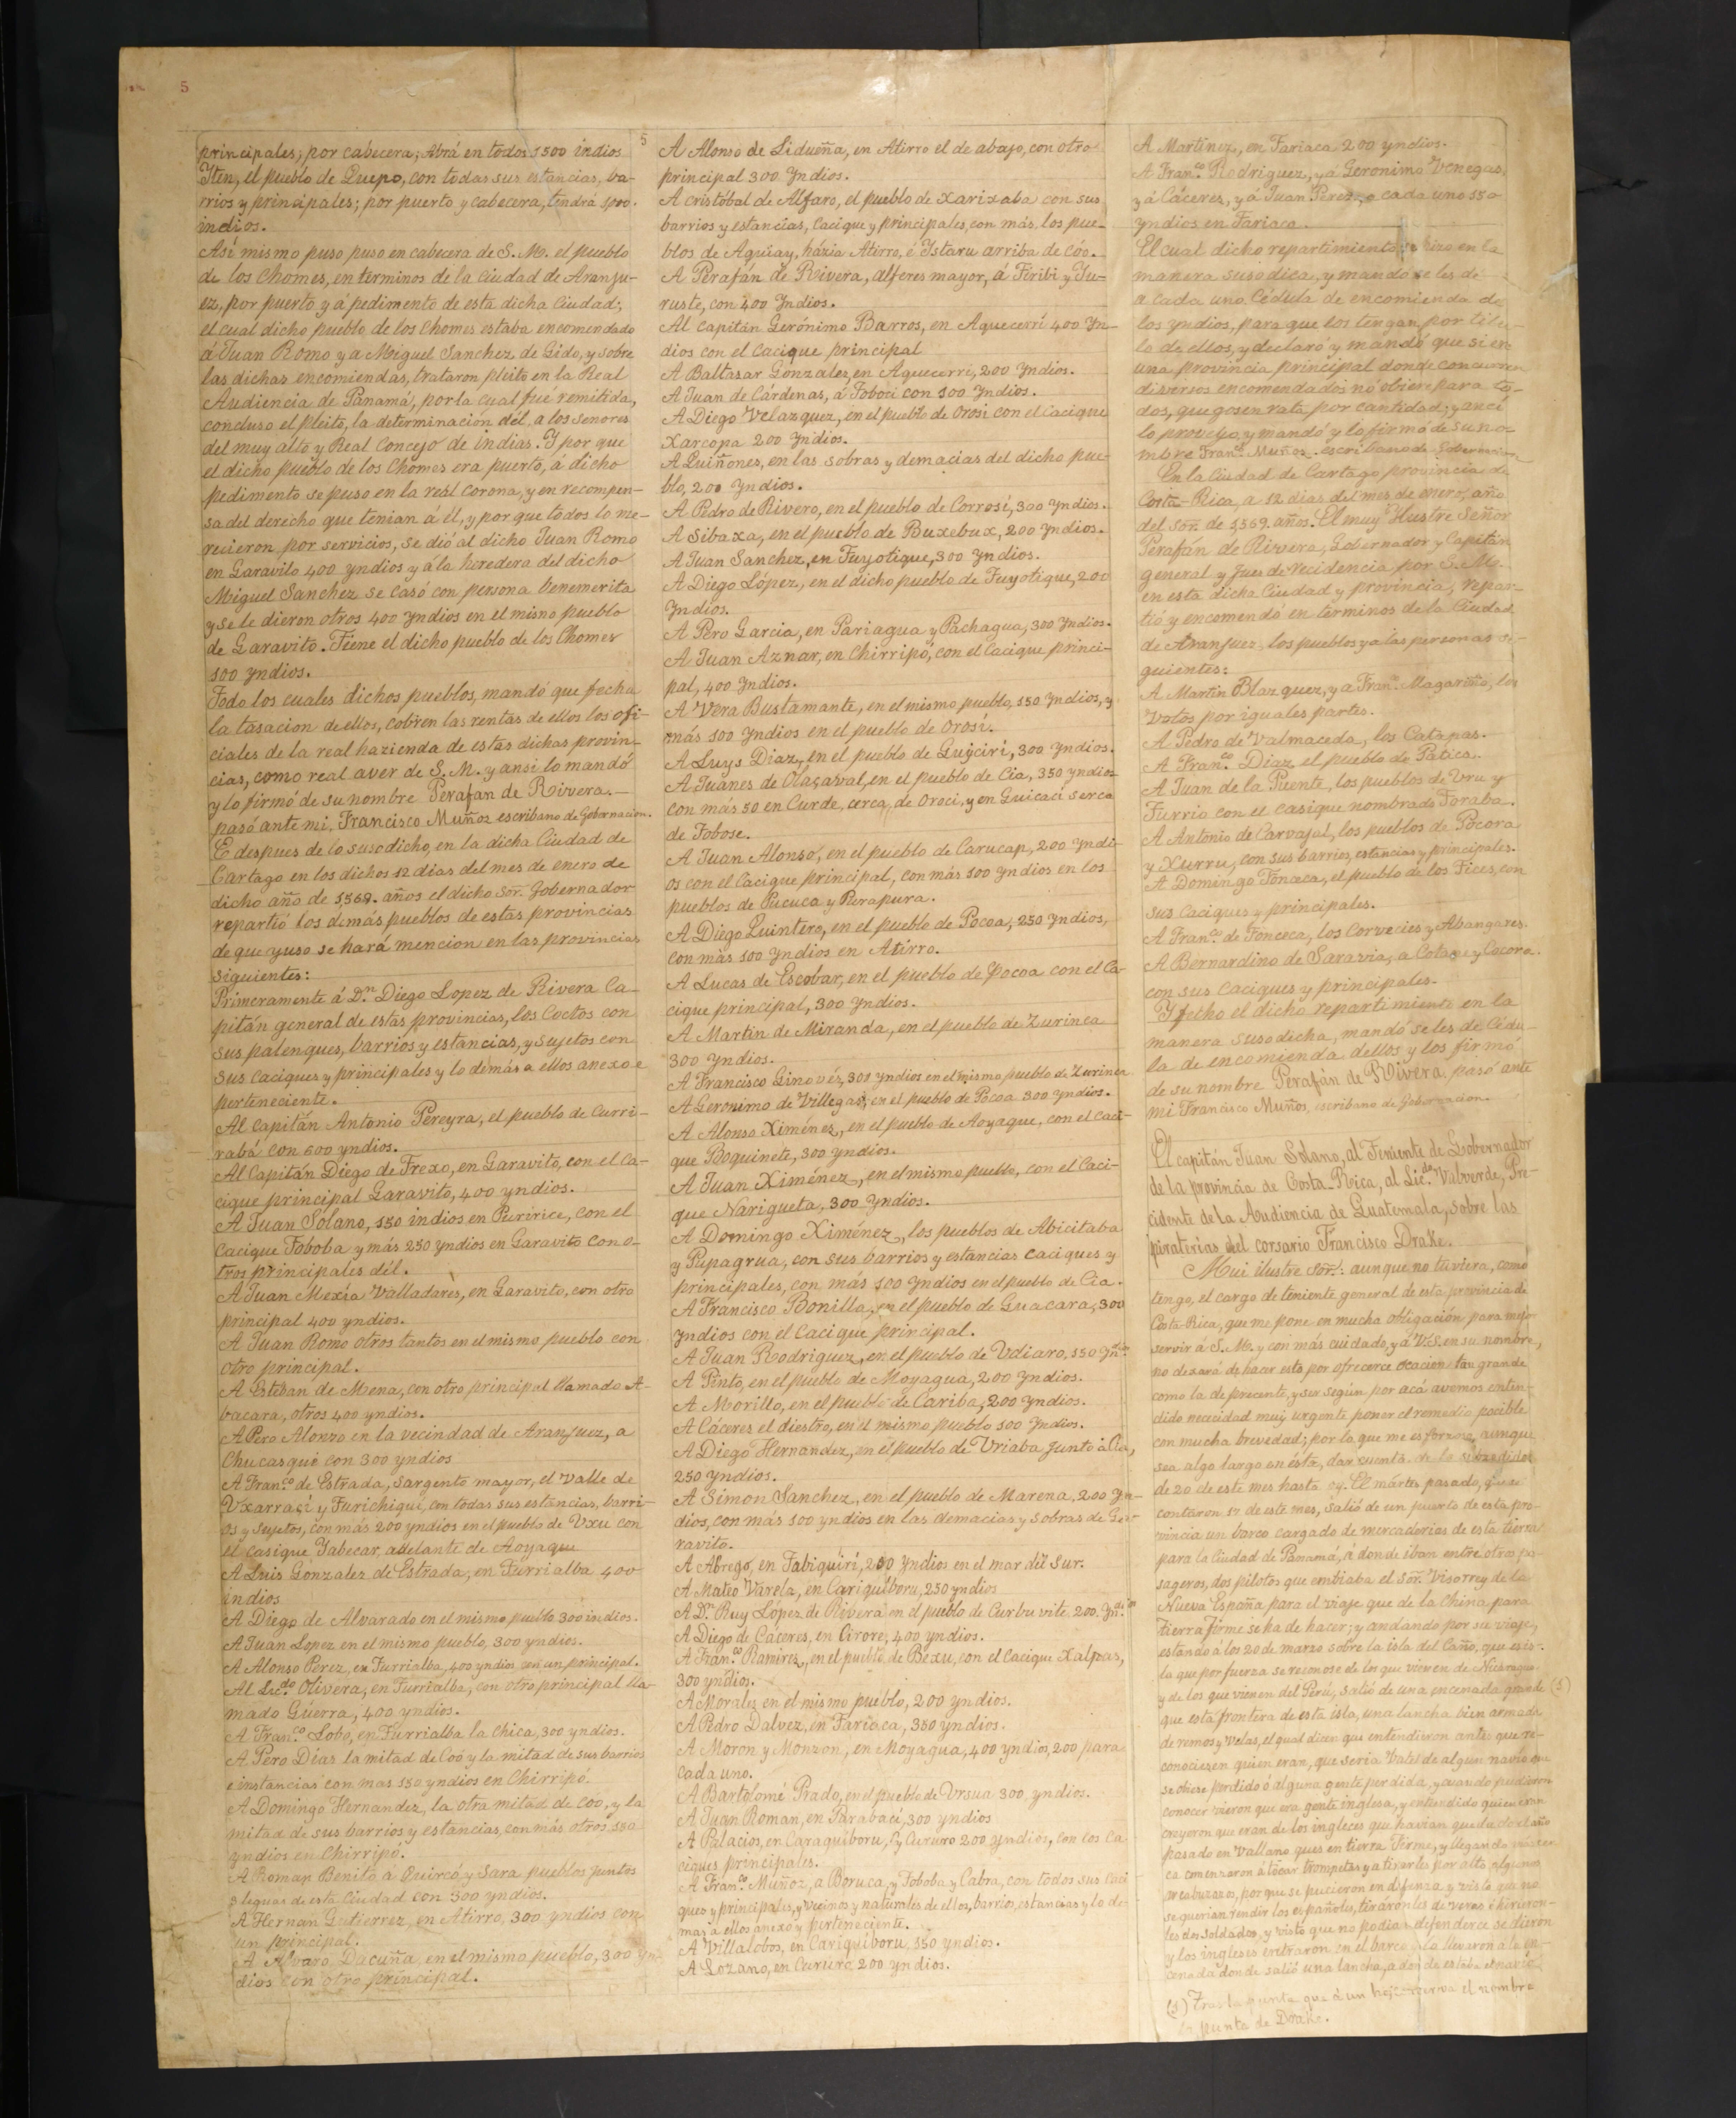 5
5
principales; por cabecera; abrá en todos 1500 indios
Yten, el pueblo de Quepo, con todas sus estancias, ba-
rrios y principales; por puerto y cabecera, tendrá 1000.
indios.
Así mismo puso puso en cabecera de S. M. el pueblo
de los Chomes, en términos de la ciudad de Aranju-
ez, por puerto y á pedimento de esta dicha Ciudad;
el cual dicho pueblo de los Chomes estaba encomendado
á Juan Romo y a Miguel Sanchez de Gido, y sobre
las dichas encomiendas, trataron pleito en la Real
Audiencia de Panamá, por la cual fue remitida,
concluso el pleito, la determinación dél, a los Senores
del muy alto y Real Concejo de indias. Y por que
el dicho pueblo de los Chomes era puerto, á dicho
pedimento se puso en la real Corona, y en recompen-
sa del derecho que tenian á él, y por que todos lo me-
recieron por servicios, se dió al dicho Juan Romo
en Garavito 400 yndios y a la heredera del dicho
Miguel Sanchez se casó con persona benemerita
y se le dieron otros 400 yndios en el mismo pueblo
de Garavito. Tiene el dicho pueblo de los Chomes
100 yndios.
Todo los cuales dichos pueblos, mandó que fecha
la tasacion de ellos, cobren las rentas de ellos los ofi-
ciales de la real hazienda de estas dichas provin-
cias, como real aver de S. M. y ansi lo mandó
y lo firmó de su nombre Perafan de Rivera.—
pasó ante mi, Francisco Muñoz escribano de Gobernacion.
E despues de lo susodicho, en la dicha Ciudad de
Cartago en los dichos 12 dias del mes de enero de
dicho año de 1569. años el dicho Sor. Gobernador
repartió los demás pueblos de estas provincias
de que yuso se hará mencion en las provincias
siguientes:
Primeramente á Dn. Diego Lopez de Rivera Ca-
pitán general de estas provincias, los Coctos con
sus palenques, barrios y estancias, y sujetos con
sus caciques y principales y lo demás a ellos anexo e
perteneciente.
Al Capitán Antonio Pereyra, el pueblo de Curri-
rabá con 600 yndios.
Al Capitán Diego de Trexo, en Garavito, con el Ca-
cique principal Garavito, 400 yndios.
A Juan Solano, 150 indios en Puririce, con el
Cacique Toboba y más 250 yndios en Garavito con o-
tros principales dél.
A Juan Mexia Valladares, en Garavito, con otro
principal 400 yndios.
A Juan Romo otros tantos en el mismo pueblo con
otro principal.
A Esteban de Mena, con otro principal llamado A-
bacara, otros 400 yndios.
A Pero Alonzo en la vecindad de Aranjuez, a
Chucasque con 300 yndios
A Franco. de Estrada, Sargento mayor, el valle de
Uxarraci y Turichiqui, con todas sus estancias, barri-
os y sujetos, con más 200 yndios en el pueblo de Uxu con
el casique Yabecar, adelante de Aoyaque
A Luis Gonzalez de Estrada, en Turrialba 400
indios
A Diego de Alvarado en el mismo pueblo 300 indios.
A Juan Lopez en el mismo pueblo, 300 yndios.
A Alonso Perez, en Turrialba, 400 yndios con un principal.
Al Licdo. Olivera, en Turrialba, con otro principal lla-
mado Güerra, 400 yndios.
A Franco. Lobo, en Turrialba la Chica, 300 yndios.
A Pero Dias la mitad de Coó y la mitad de sus barrios
e instancias con mas 150 yndios en Chirripó.
A Domingo Hernandez, la otra mitad de Coo, y la
mitad de sus barrios y estancias, con más otros 150
yndios en Chirripó.
A Roman Benito, á Quircó y Sara pueblos juntos
3 leguas de esta Ciudad con 300 yndios.
A Hernan Gutierrez, en Atirro, 300 yndios con
un principal.
A Alvaro Dacuña, en el mismo pueblo, 300 yn-
dios con otro principal.
A Alonso de Sidueña, en Atirro el de abajo, con otro
principal 300 Yndios.
A cristóbal de Alfaro, el pueblo de Xarixaba con sus
barrios y estancias, Cacique y principales, con más los pue-
blos de Aquiay, házia Atirro, é Ystaru arriba de Cóo.
A Perafán de Rivera, alferes mayor, á Tiribi y Ju-
ruste, con 400 Yndios.
Al Capitán Gerónimo Barros, en Aquecerrí 400 Yn-
dios con el Cacique principal
A Baltasar Gonzalez, en Aquecerrí, 200 Yndios.
A Juan de Cárdenas, á Toboci con 100 Yndios.
A Diego Velazquez, en el pueblo de Orosi con el Cacique
Xarcopa 200 Yndios.
A Quiñones, en las sobras y demacias del dicho pue-
blo, 200 Yndios.
A Pedro de Rivero, en el pueblo de Corrosí, 300 Yndios.
A Sibaxa, en el pueblo de Buxebux, 200 Yndios.
A Juan Sanchez, en Tuyotique, 300 Yndios.
A Diego López, en el dicho pueblo de Tuyotique, 200
Yndios.
A Pero Garcia, en Pariagua y Pachagua, 300 Yndios.
A Juan Aznar, en Chirripó, con el Cacique princi-
pal, 400 Yndios.
A Vera Bustamante, en el mismo pueblo, 150 Yndios, y
más 100 Yndios en el pueblo de Orosí.
A Luys Diaz, en el pueblo de Guycirí, 300 Yndios.
A Juanes de Olaçarval, en el pueblo de Cia, 350 Yndios
con más 50 en Curde, cerca de Oroci, y en Guicaci serca
de Tobose.
A Juan Alonso, en el pueblo de Carucap, 200 Yndi-
os con el Cacique principal, con más 100 Yndios en los
pueblos de Pucuca y Perapura.
A Diego Quintero, en el pueblo de Pocoa, 250 Yndios,
con más 100 Yndios en Atirro.
A Lucas de Escobar, en el pueblo de Pocoa con el Ca-
cique principal, 300 Yndios.
A Martin de Miranda, en el pueblo de Zurinca
300 Yndios.
A Francisco Ginovés, 300 Yndios en el mismo pueblo de Zurinca
A Geronimo de Villegas, en el pueblo de Pocoa 300 Yndios.
A Alonso Ximénez, en el pueblo de Aoyaque, con el Caci-
que Boquinete, 300 Yndios.
A Juan Ximénez, en el mismo pueblo, con el Caci-
que Narigueta, 300 Yndios.
A Domingo Ximénez, los pueblos de Abicitaba
y Pupagrua, con sus barrios y estancias caciques y
principales, con más 100 Yndios en el pueblo de Cia.
A Francisco Bonilla, en el pueblo de Guacara, 300
Yndios con el Cacique principal.
A Juan Rodriguez, en el pueblo de Udiaro, 150 Yndios
A Pinto, en el pueblo de Moyagua, 200 Yndios.
A Morillo, en el pueblo de Cariba, 200 Yndios.
A Cáceres el diestro, en el mismo pueblo 100 Yndios.
A Diego Hernandez, en el pueblo de Uriaba junto á Cia,
250 Yndios.
A Simon Sanchez, en el pueblo de Marena, 200 Yn-
dios, con más 100 yndios en las demacias y sobras de Ga-
ravito.
A Abrego, en Tabiquiri, 200 Yndios en el mar dél Sur.
A Mateo Varela, en Cariquiboru, 250 yndios
A Dn. Ruy López de Rivera en el pueblo de Curbu vite 200. Yndios
A Diego de Cáceres, en Cirore, 400 yndios.
A Franco. Ramirez, en el pueblo de Bexu, con el Cacique Xalpas,
300 yndios.
A Morales en el mismo pueblo, 200 yndios.
A Pedro Dalvez, en Tariaca, 350 yndios.
A Moron y Monzon, en Moyagua, 400 yndios, 200 para
Cada uno.
A Bartolomé Prado, en el pueblo de Ursua 300 yndios.
A Juan Roman, en Parabací, 300 yndios
A Palacios, en Caraquiboru, y Cururo 200 yndios, con los Ca-
ciques principales.
A Franco. Muñoz, a Boruca, y Toboba y Cabra, con todos sus caci
ques y principales, y vecinos y naturales de ellos, barrios, estancias y lo de
mas a ellos anexo y perteneciente.
A Villalobos, en Cariquiboru 150 yndios.
A Lozano, en Cururo 200 yndios.
A Martinez, en Tariaca 200 yndios.
A Franco. Rodriguez, y á Geronimo Venegas,
y á Cáceres, y á Juan Perez, a cada uno 150
yndios en Tariaca.
El cual dicho repartimiento hizo en la
manera susodica, y mandó se les dé
a cada uno Cédula de encomienda de
los yndios, para que los tengan por titu-
lo de ellos, y declaró y mandó que si en
una provincia principal donde concurren
diversos encomendados nó obiere para to-
dos, que gosen rata por cantidad, y ancí
lo proveyo, y mandó y lo firmó de su no
mbre Franco. Muñoz escribano de Gobernacion
En la Ciudad de Cartago provincia de
Costa-Rica, a 12 dias del mes de enero, año
del Sor. de 1569. años. El muy Ilustre Señor
Perafán de Rivera, Gobernador y Capitán
general y Jues de recidencia por S. M.
en esta dicha Ciudad y provincia, repar-
tió y encomendó en términos de la Ciudad
de Aranjuez, los pueblos y a las personas si-
guientes:
A Martin Blazquez, y a Franco. Magariño, los
Votos por iguales partes.
A Pedro de Valmaceda, los Catapas.
A Franco. Diaz, el pueblo de Patica.
A Juan de la Puente, los pueblos de Uru y
Turrio con el casique nombrado Toraba.
A Antonio de Carvajal, los pueblos de Pocora
y Xurru, con sus barrios, estancias y principales.
A Domingo Fonceca, el pueblo de los Tices, con
sus Caciques y principales.
A Franco. de Fonceca, los Corvecies y Abangares.
A Bernardino de Saravia, a Cotane y Cocoro.
con sus Caciques y principales.
Y fecho el dicho repartimiento en la
manera susodicha, mandó se les de Cédu-
la de encomienda dellos y los firmó
de su nombre Perafán de Rivera, pasó ante
mi Francisco Muños, escribano de Gobernacion.
El capitán Juan Solano, al Teniente de Gobernador
de la provincia de Costa-Rica, al Licdo. Valverde, Pre-
cidente de la Audiencia de Guatemala, sobre las
piraterías del corsario Francisco Drake.
Mui ilustre Sor.: aunque no tuviera, como
tengo, el cargo de teniente general de esta provincia de
Costa Rica, que me pone en mucha obligación para mejor
servir á S. M. y con más cuidado, y á V.S. en su nombre,
no dexará de hacer esto por ofrecerce ocacion tan grande
como la de precente, y ser según por acá avemos enten-
dido nececidad muy urgente poner el remedio pocible
con mucha brevedad; por lo que me es forzoso, aunque
sea algo largo en ésta, dar cuenta de lo subcedido
de 20 de este mes hasta oy. El mártes pasado, que se
contaron 17 de este mes, salió de un puerto de esta pro-
vincia un barco cargado de mercaderias de esta tierra
para la Ciudad de Panamá, á donde iban entre otros pa-
sageros, dos pilotos que embiaba el Sor. Visorrey de la
Nueva España para el viaje que de la China para
Tierra Firme se ha de hacer; y andando por su viaje,
estando á los 20 de marzo sobre la isla del Caño, que es is-
la que por fuerza se reconose de los que vienen de Nicaragua
y de los que vienen del Perú, salió de una encenada grande (1)
que está frontera de esta isla, una lancha bien armada
de remos y velas, el qual dicen que entendieron antes que re-
conociesen quien eran, que seria batel de algun navio que
se obiese perdido ó alguna gente perdida, y cuando pudieron
conocer vieron que era gente inglesa, y entendido quien eran
creyeron que eran de los ingleces que havian quedado el año
pasado en Vallano ques en tierra Firme, y llegando más cer
ca comenzaron á tocar trompetas y a tirarles por alto algunos
arcabuzazos, por que se pucieron en defenza y vista que no
se querian rendir los españoles, tiraronles de veras é hirieron-
les dos soldados, y visto que no podian defenderce se dieron
y los ingleses entraron en el barco y lo llevaron a la en-
cenada donde salió una lancha, a donde estaba el navio
(1) Tras la punta que á un hoy conserva el nombre
de punta de Drake.